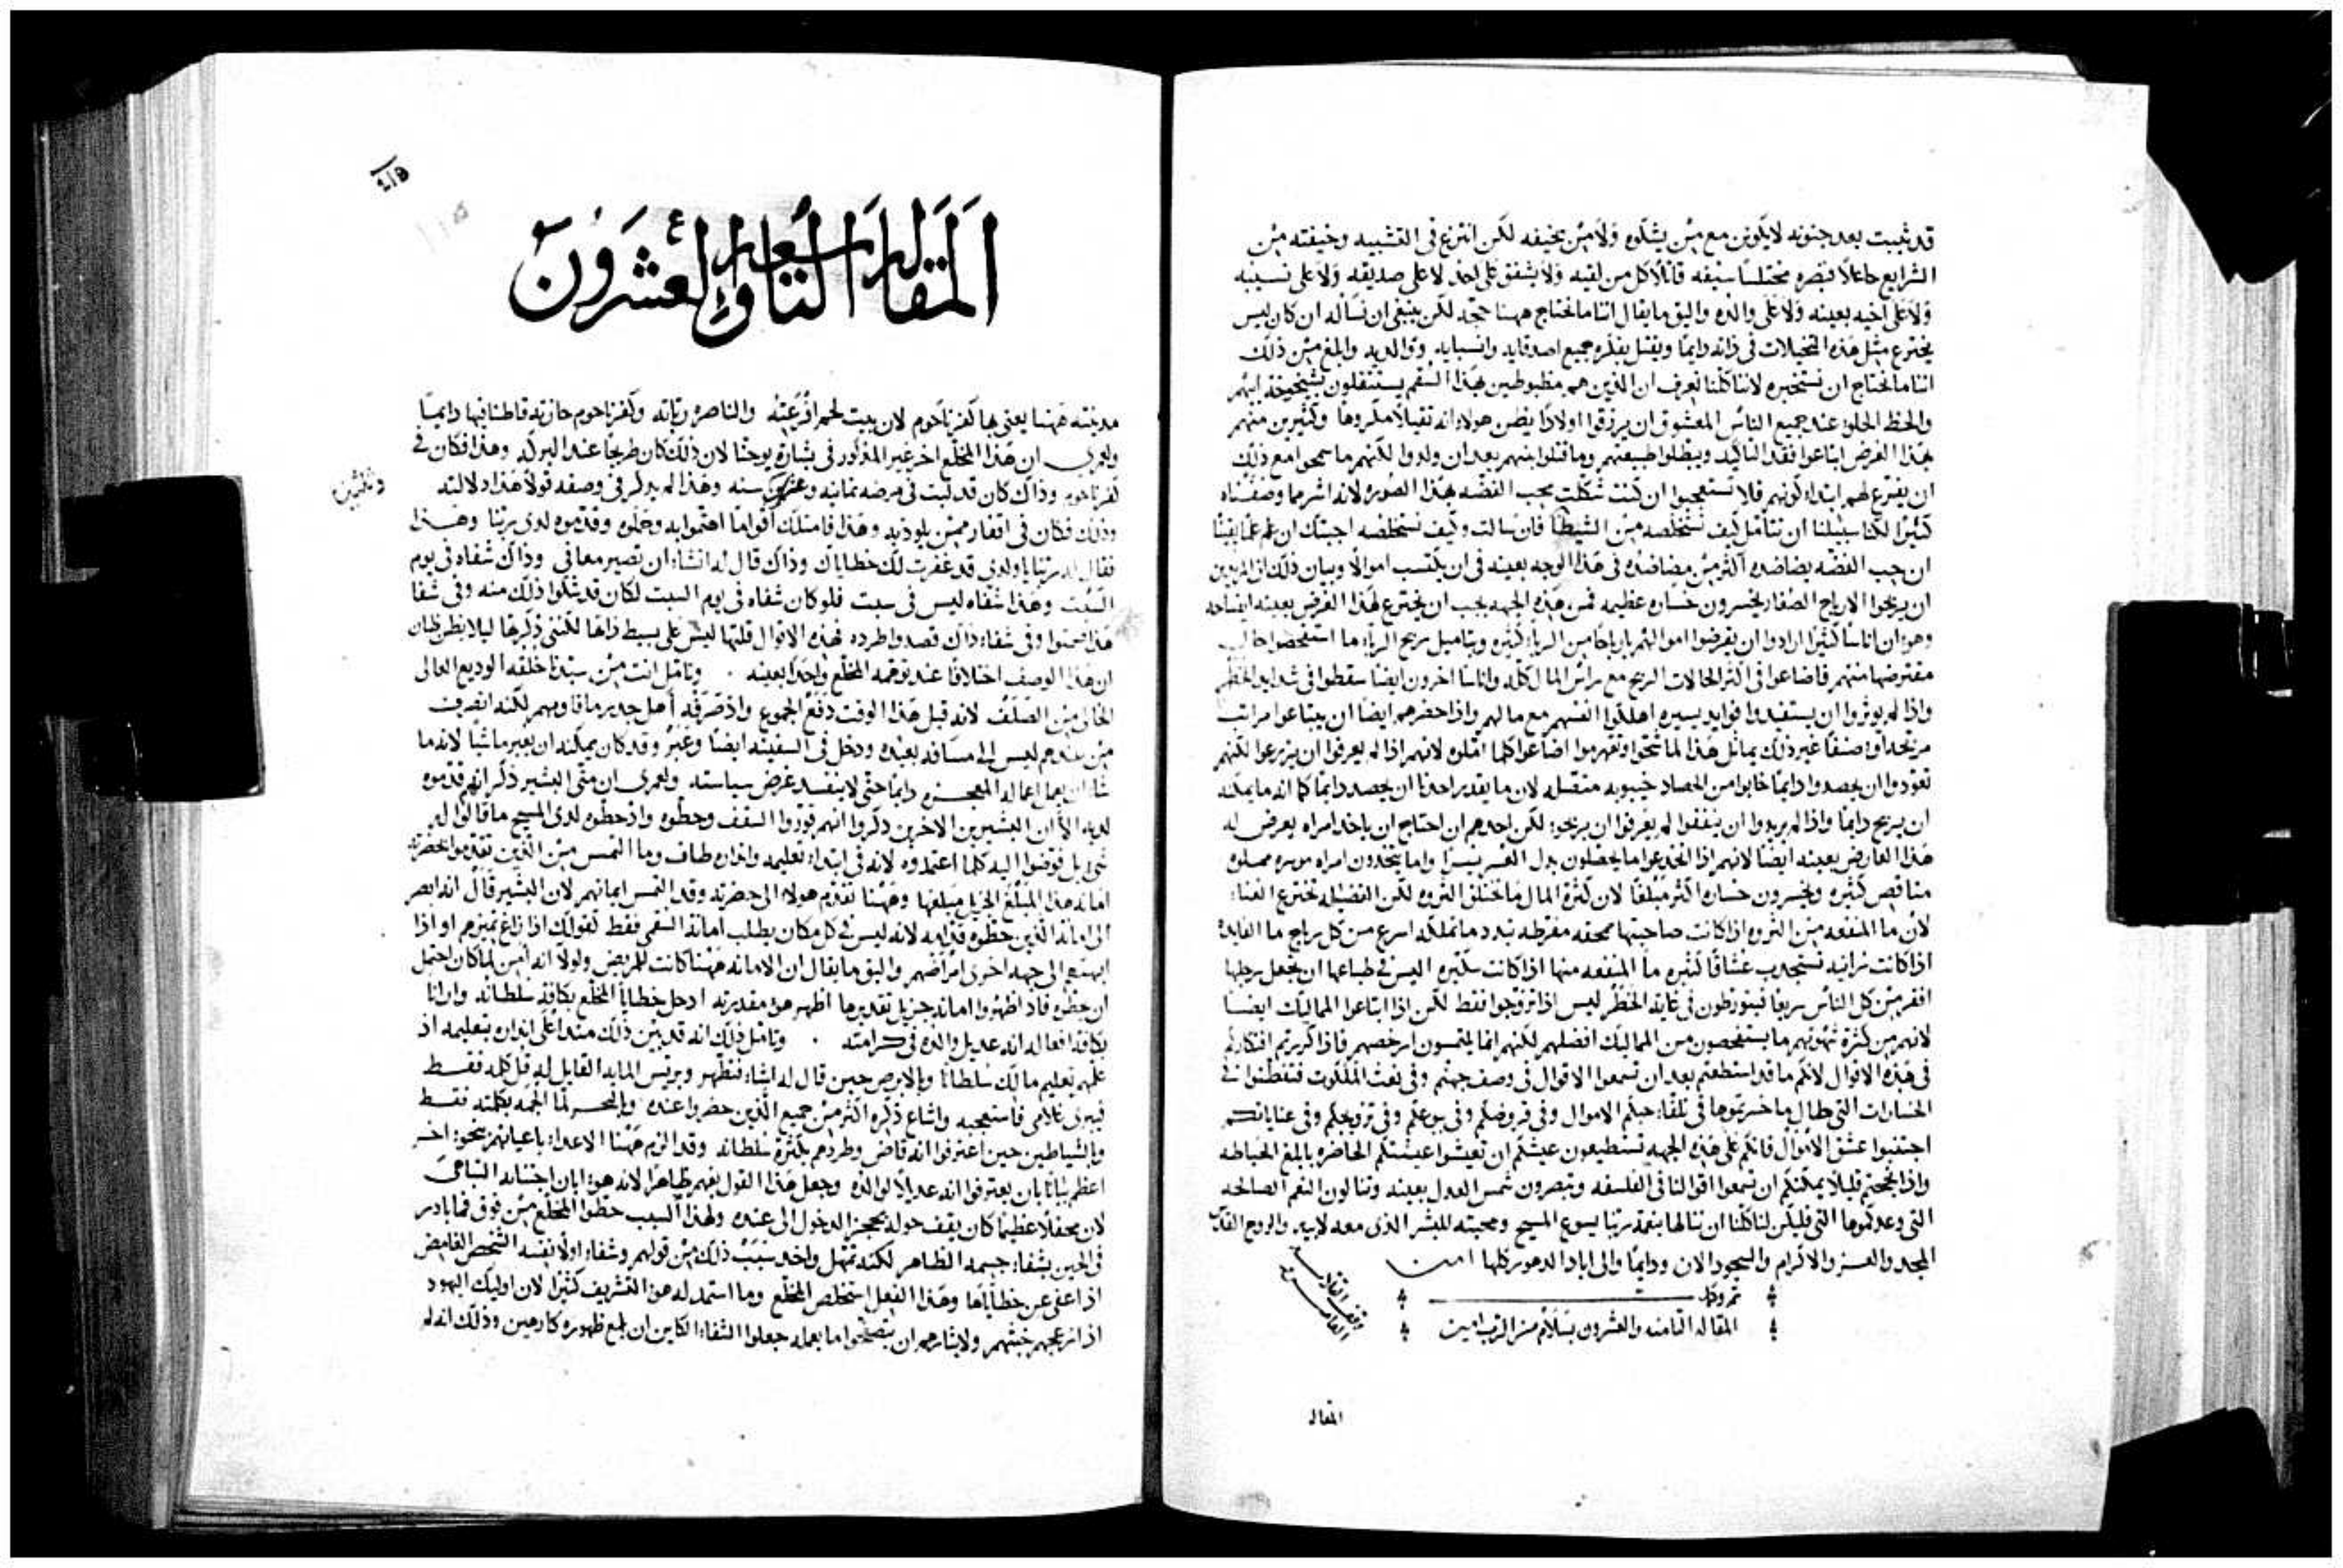 قد ثبت بعد جنونه لا يكونن مع من يشكوه ولا من يخيفه لكن انترع في القشبيه وخيفته من
الشرايع جاعلاً فنصره مختلسًا سيفه قاتلاً كل من لقيه ولا يشفق على احد لا على صديقه ولا على نسيبه
ولا على اخيه بعينه ولا على والده واليق ما يقال اننا ما نحتاج ههنا حجه لكن ينبغي ان نساله ان كان ليس
يخترع مثل هذه التخيلات في ذاته دايمًا ويقتل بفكره جميع اصدقايه وانسبايه ووالديه وابلغ من ذلك
اننا ما نحتاج ان نستخبره لاننا كلنا نعرف ان الذين هم مظبوطين بهذا السقم يستثقلون شيخوخة ابيهم
والحظ الحلو عند جميع الناس المعشوق ان يرزقوا اولادًا يظن هولاء انه ثقيلاً مكروهًا وكثيرين منهم
بهذا الغرض ابتاعوا فقد التاكيد وبطلوا طبيعتهم وما قتلوا بنيهم بعد ان ولدوا لكنهم ما سمحوا مع ذلك
ان يفترع لهم ابتداء كونهم فلا تستعجبوا ان كنت شكلت محب الفضه بهذا الصوره لانه اشر مما وصفناه
كثيرًا لكنا سبيلنا ان نتامل كيف نستخلصه من الشيطان فان سالت وكيف نستخلصه اجبتك ان علم علمًا يقينًا
ان حب الفضه يضاضده اكثر من مضاضده في هذا الوجه بعينه في ان يكتسب اموالاً وبيان ذلك ان المريدين
ان يربحوا الارباح الصغار يخسرون خساره عظيمه فمن هذه الجهه يجب ان يخترع لهذا الغرض بعينه ايضاحه
وهو ان اناسًا كثيرًا ارادوا ان يقرضوا اموالهم بارباحًا من الرباء كثيره وبتاميل ربح الرباء ما استفحصوا حال
مقترضها منهم فاضاعوا في اكثر الحالات الربح مع راس المال كله واناسًا اخرون ايضًا سقطوا في شدايد الخطر
واذا لم يوثروا ان يستفيدوا فوايد يسيره اهلكوا انفسهم مع مالهم واذا حضرهم ايضًا ان يبتاعوا مراتب
مربحه او صنفًا غير ذلك يماثل هذا لما شحوا وتقهرموا اضاعوا كلما املوه لانهم اذا لم يعرفوا ان يزرعوا لكنهم
تعودوا ان يحصدوا دايمًا خابوا من الحصاد خيبوبه متصله لان ما يقدر احدنا ان يحصد دايمًا كما انه ما يمكنه
ان يربح دايمًا واذا لم يريدوا ان ينفقوا لم يعرفوا ان يربحوا لكن احدهم ان احتاج ان ياخذ امراه يعرض له
هذا العارض بعينه ايضًا لانهم اذا انخدعوا اما يحصلون بدل الغنى فقرًا واما يتخذون امراه موسره مملوه
مناقص كثيره ويخسرون خساره اكثر مبلغًا لان كثرة المال ما تختلق الثروه لكن الفضيله تخترع الغناء
لان ما المنفعه من الثروه اذا كانت صاحبتها مجحفه مفرطه تبدد ما تملكه اسرع من كل رياح ما الفايده
اذا كانت زانيه تستجدب عشاقًا كثيره ما المنفعه منها اذا كانت سكيره اليس في طباعها ان تجعل رجلها
افقر من كل الناس سريعًا فيتورطون في غاية الخطر ليس اذا تزوجوا فقط لكن اذا ابتاعوا المماليك ايضًا
لانهم من كثرة شهوتهم ما يستفحصون من المماليك افضلهم لكنهم انما يلتمسون ارخصهم فاذا كررتم افتكاركم
في هذه الاقوال لانكم ما قد استطعتم بعد ان تسمعوا الاقوال في وصف جهنم وفي نعت الملكوت فتفطنوا في
الخسارات التي طال ما خسرتموها في تلقاء حبكم الاموال وفي قروضكم وفي بيوعكم وفي تزويجكم وفي عناياتكم
اجتنبوا عشق الاموال فانكم على هذه الجهه تستطيعون عيشكم ان تعيشوا عيشتكم الحاضره بابلغ الحياطه
واذا نجحتم قليلاً يمكنكم ان تسمعوا اقوالنا في الفلسفه وتبصرون شمس العدل بعينه وتنالون النعم الصالحه
التي وعدكموها التي فليكن لنا كلنا ان ننالها بنعمة ربنا يسوع المسيح ومحبته للبشر الذي معه لابيه والروح القدس
المجد والعز والاكرام والسجود الان ودايمًا والى اباد الدهور كلها امين
تم وكمل
المقاله الثامنه والعشرون بسلام من الرب امين
المقاله
المقاله التاسعه والعشرون
مدينته ههنا يعني بها كفرناحوم لان بيت لحم افرعته والناصره ربته وكفرناحوم حازته قاطنًا فيها دايمًا
ولعمري ان هذا المخلع اخر غير المذكور في بشارة يوحنا لان ذلك كان طريحًا عند البركه وهذا فكان في
كفرناحوم وذاك كان قد لبث في مرضه ثمانيه وعشرين سنه وهذا لم يذكر في وصفه قولاً هذا دلالته
وثلثين
وذلك فكان في افتقار ممن يلوذ به وهذا فامتلك اقوامًا اهتموا به وحملوه وقدموه لدى ربنا وهذا
فقال له ربنا يا ولدي قد غفرت لك خطاياك وذاك قال له اتشاء ان تصير معافى وذاك شفاه في يوم
السبت وهذا شفاه ليس في سبت فلو كان شفاه في يوم السبت لكان قد شكوا ذلك منه وفي شفا
هذا صمتوا وفي شفاء ذاك قصدوا طرده فهذه الاقوال قلتها ليس على بسيط ذاتها لكنني ذكرتها ليلا يظن ظان
ان هذا الوصف اختلافًا عند توهمه المخلع واحدًا بعينه . وتامل انت من سيدنا خلقه الوديع العالى
الخالى من الصلف لانه قبل هذا الوقت دفع الجموع واذ صرفه اهل جدير ما قاومهم لكنه انصرف
من عندهم ليس الى مسافه بعيده ودخل في السفينه ايضًا وعبر وقد كان يمكنه ان يعبر ماشيًا لانه ما
شاء ان يعمل اعماله المعجزه دايمًا حتى لا يفسد غرض سياسته ولعمري ان متى البشير ذكر انهم قدموه
لديه الا ان البشيرين الاخرين ذكروا انهم قوروا السقف وحطوه واذ حطوه لدى المسيح ما قالوا له
شي بل فوضوا اليه كلما اعتمدوه لانه في ابتداء تعليمه واخراه طاف وما التمس من الذين تقدموا بحضرته
امانه هذا المبلغ الجزيل مبلغها وههنا تقدم هولاء الى حضرته وقد التمس ايمانهم لان البشير قال انه ابصر
الى امانة الذين حطوه قدامه لانه ليس في كل مكان يطلب امانة السقمى فقط كقولك اذا زاغ تميزهم او اذا
ابهتهم الى جهه اخرى امراضهم واليق ما يقال ان الامانه ههنا كانت للمريض ولولا انه امن لما كان احتمل
ان حطوه فاذ اظهروا امانه جزيل تقديرها اظهر هو مقدرته ادحل خطايا المخلع بكافة سلطانه وارانا
بكافة افعاله انه عديل والده في كرامته . وتامل ذلك انه قد بين ذلك منذ اعلى ابداه بتعليمه اذ
علمهم تعليم مالك سلطانًا وبالابرص حين قال له اشاء فتطهر وبريس المايه القايل له قل كلمه فقط
فيبرى غلامي فاستعجبه واشاع ذكره اكثر من جميع الذين حضروا عنده وبالبحر لما الجمه بكلمته فقط
وبالشياطين حين اعترفوا انه قاض وطردهم بكثرة سلطانه وقد الزم ههنا الاعداء باعيانهم بنحو اخر
اعظم بيانًا بان يعترفوا انه عديلاً لوالده وجعل هذا القول بفمهم ظاهرًا لانه هو ابان اجتنابه التباهي
لان محفلاً عظيمًا كان يقف حوله يحجز الدخول الى عنده ولهذا السبب حطوا المخلع من فوق فما بادر
في الحين بشفاء جسمه الظاهر لكنه تمهل واخد سبب ذلك من قولهم وشفاء اولاً نفسه الشخص الغامض
اذ اعفى عن خطاياها وهذا الفعل استخلص المخلع وما استمد له هو التشريف كثيرًا لان اوليك اليهود
اذ ازعجهم خبثهم ولايثارهم ان يتصفحوا ما يعمله جعلوا الشفاء الكاين ان بلغ ظهوره كارهين وذلك انه لم